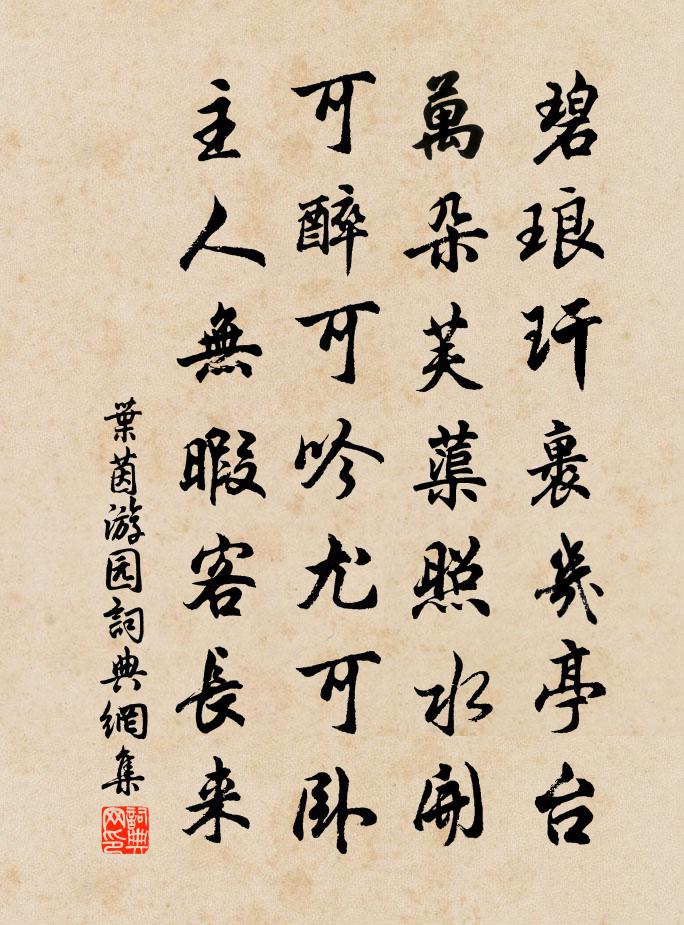 碧琅玕裹幾亭台
萬朵芙蕖照水開
可醉可吟尤可卧
主人無暇客長来
葉茵游园詞典網集
詞典网印